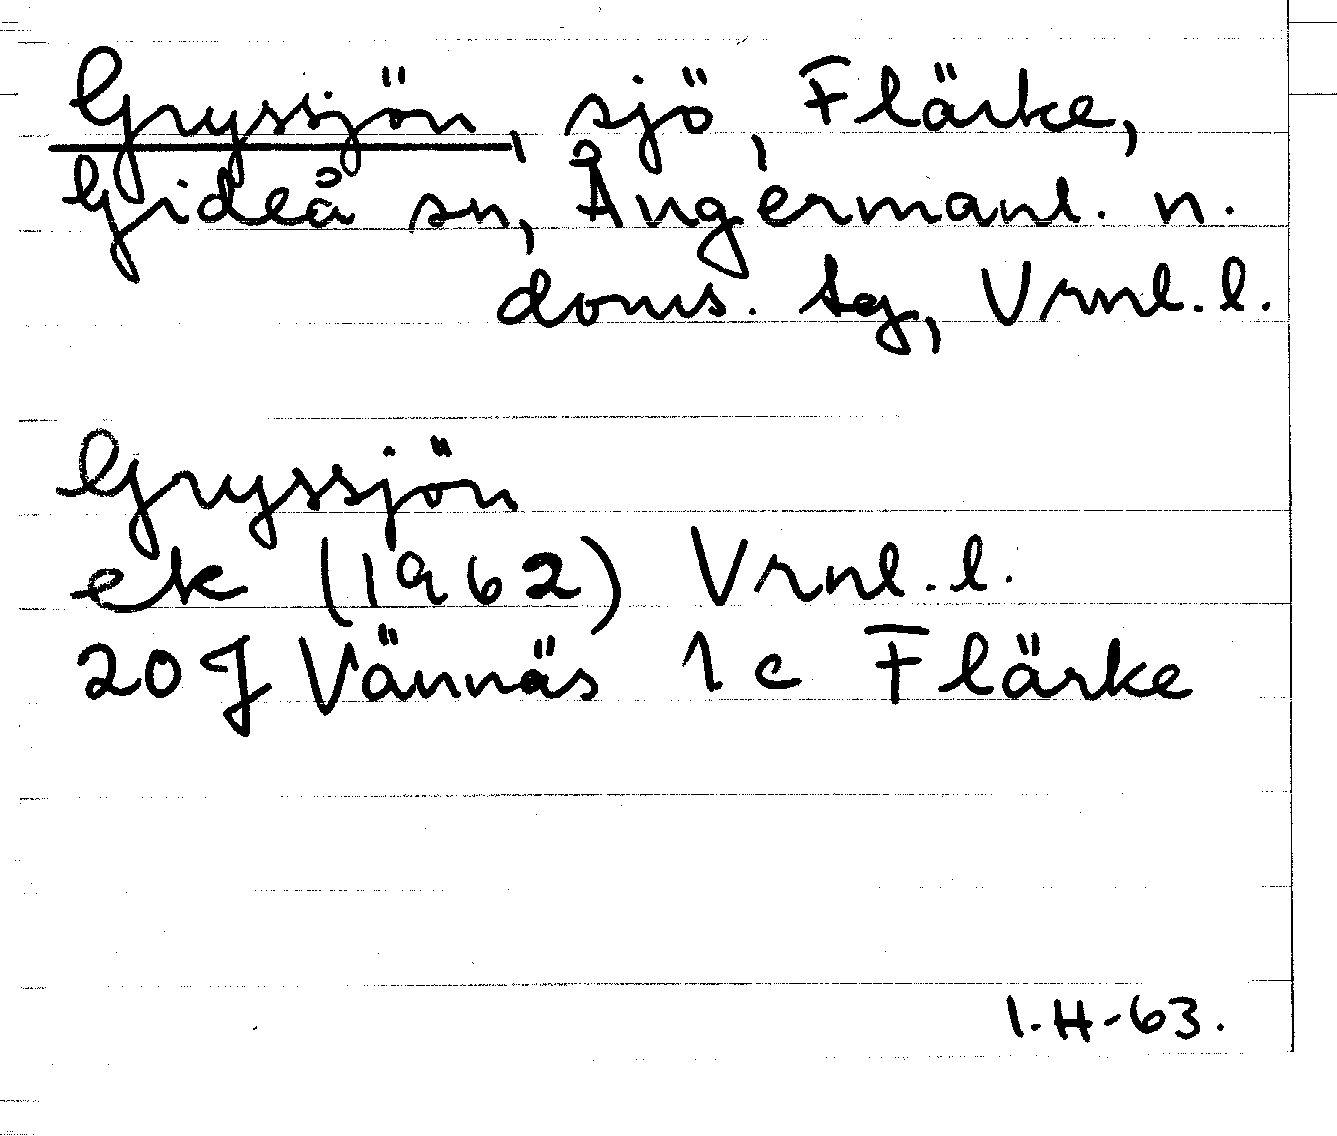 Gryssjön, sjö, Flärke,
Gideå sn, Ångermanl. n.
doms. tg, Vrnl. l.
Gryssjön
ek (1962) Vrnl. l.
20 J Vännäs 1 c Flärke
I.H-63.